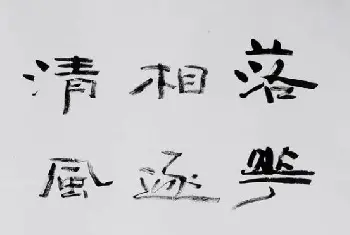 落
相逐
清風